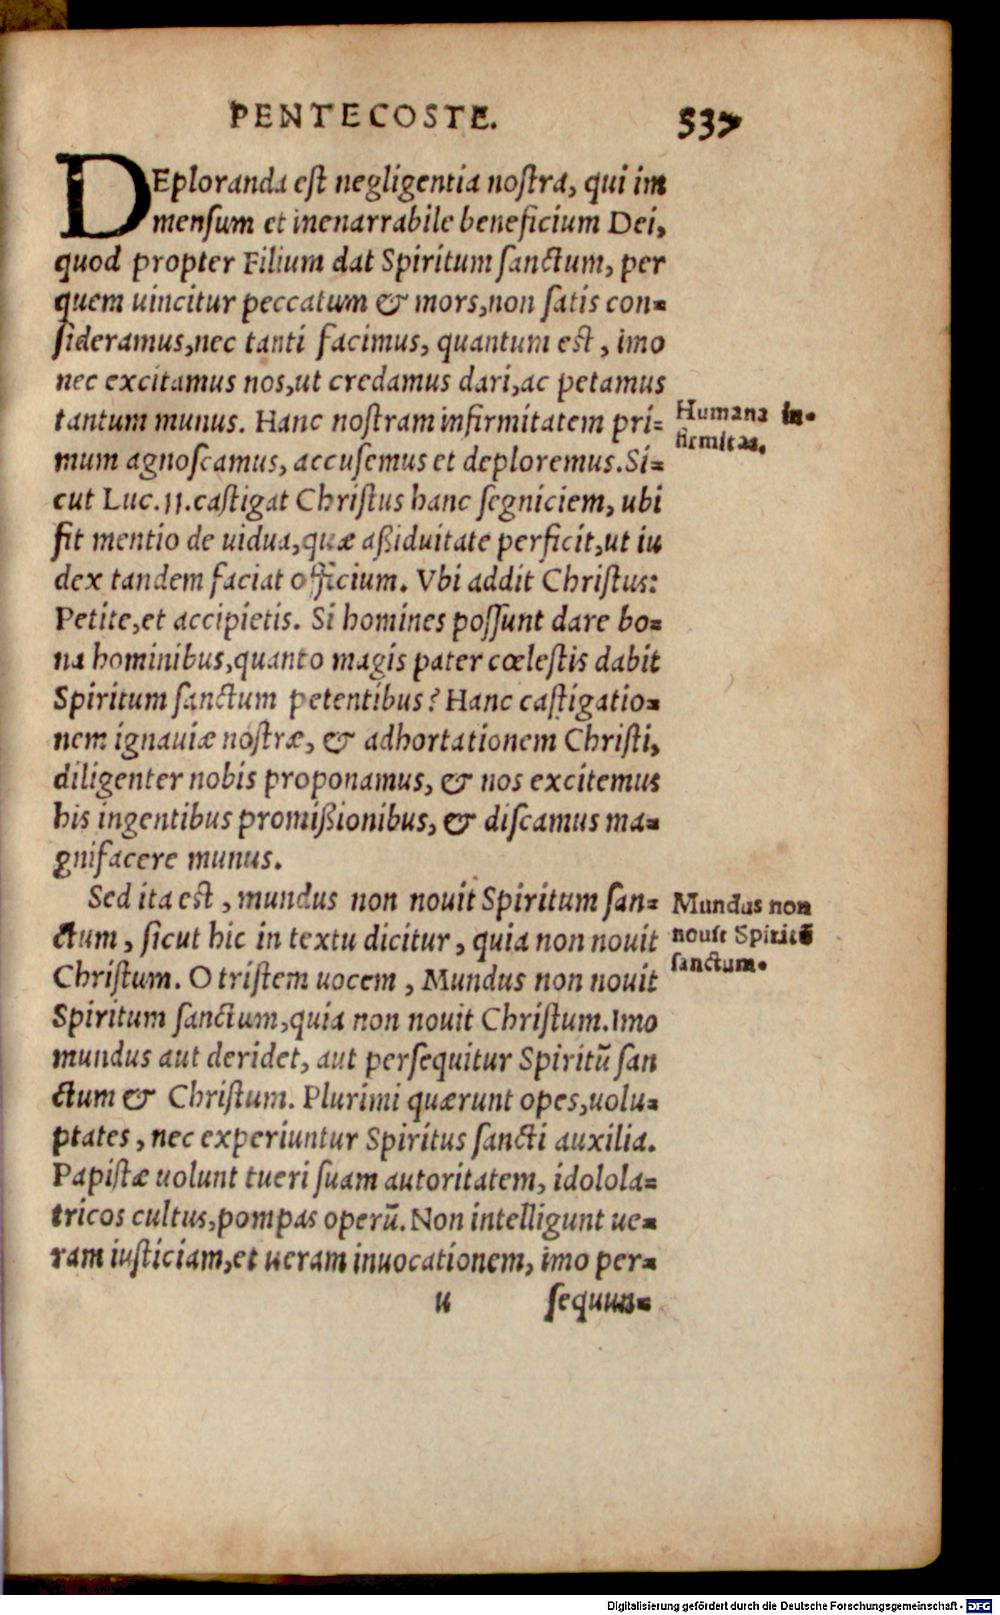 PENTECOSTE. 537
DEploranda est negligentia nostra, qui im
mensum et inenarrabile beneficium Dei,
quod propter Filium dat Spiritum sanctum, per
quem uincitur peccatum & mors, non satis con-
sideramus, nec tanti facimus, quantum est, imo
nec excitamus nos, ut credamus dari, ac petamus
tantum munus. Hanc nostram infirmitatem pri-
Humana in-
firmitas.
mum agnoscamus, accusemus et deploremus. Si-
cut Luc. 11. castigat Christus hanc segniciem, ubi
fit mentio de uidua, quæ aßiduitate perficit, ut iu
dex tandem faciat officium. Vbi addit Christus:
Petite, et accipietis. Si homines possunt dare bo-
na hominibus, quanto magis pater cœlestis dabit
Spiritum sanctum petentibus? Hanc castigatio-
nem ignauiæ nostræ, & adhortationem Christi,
diligenter nobis proponamus, & nos excitemus
his ingentibus promißionibus, & discamus ma-
gnifacere munus.
Sed ita est, mundus non nouit Spiritum san-
Mundus non
nouit Spiritū
sanctum.
ctum, sicut hic in textu dicitur, quia non nouit
Christum. O tristem uocem, Mundus non nouit
Spiritum sanctum, quia non nouit Christum. Imo
mundus aut deridet, aut persequitur Spiritū san
ctum & Christum. Plurimi quærunt opes, uolu-
ptates, nec experiuntur Spiritus sancti auxilia.
Papistæ uolunt tueri suam autoritatem, idolola-
tricos cultus, pompas operū. Non intelligunt ue-
ram iusticiam, et ueram inuocationem, imo per-
u sequun-
Digitalisierung gefördert durch die Deutsche Forschungsgemeinschaft - DFG